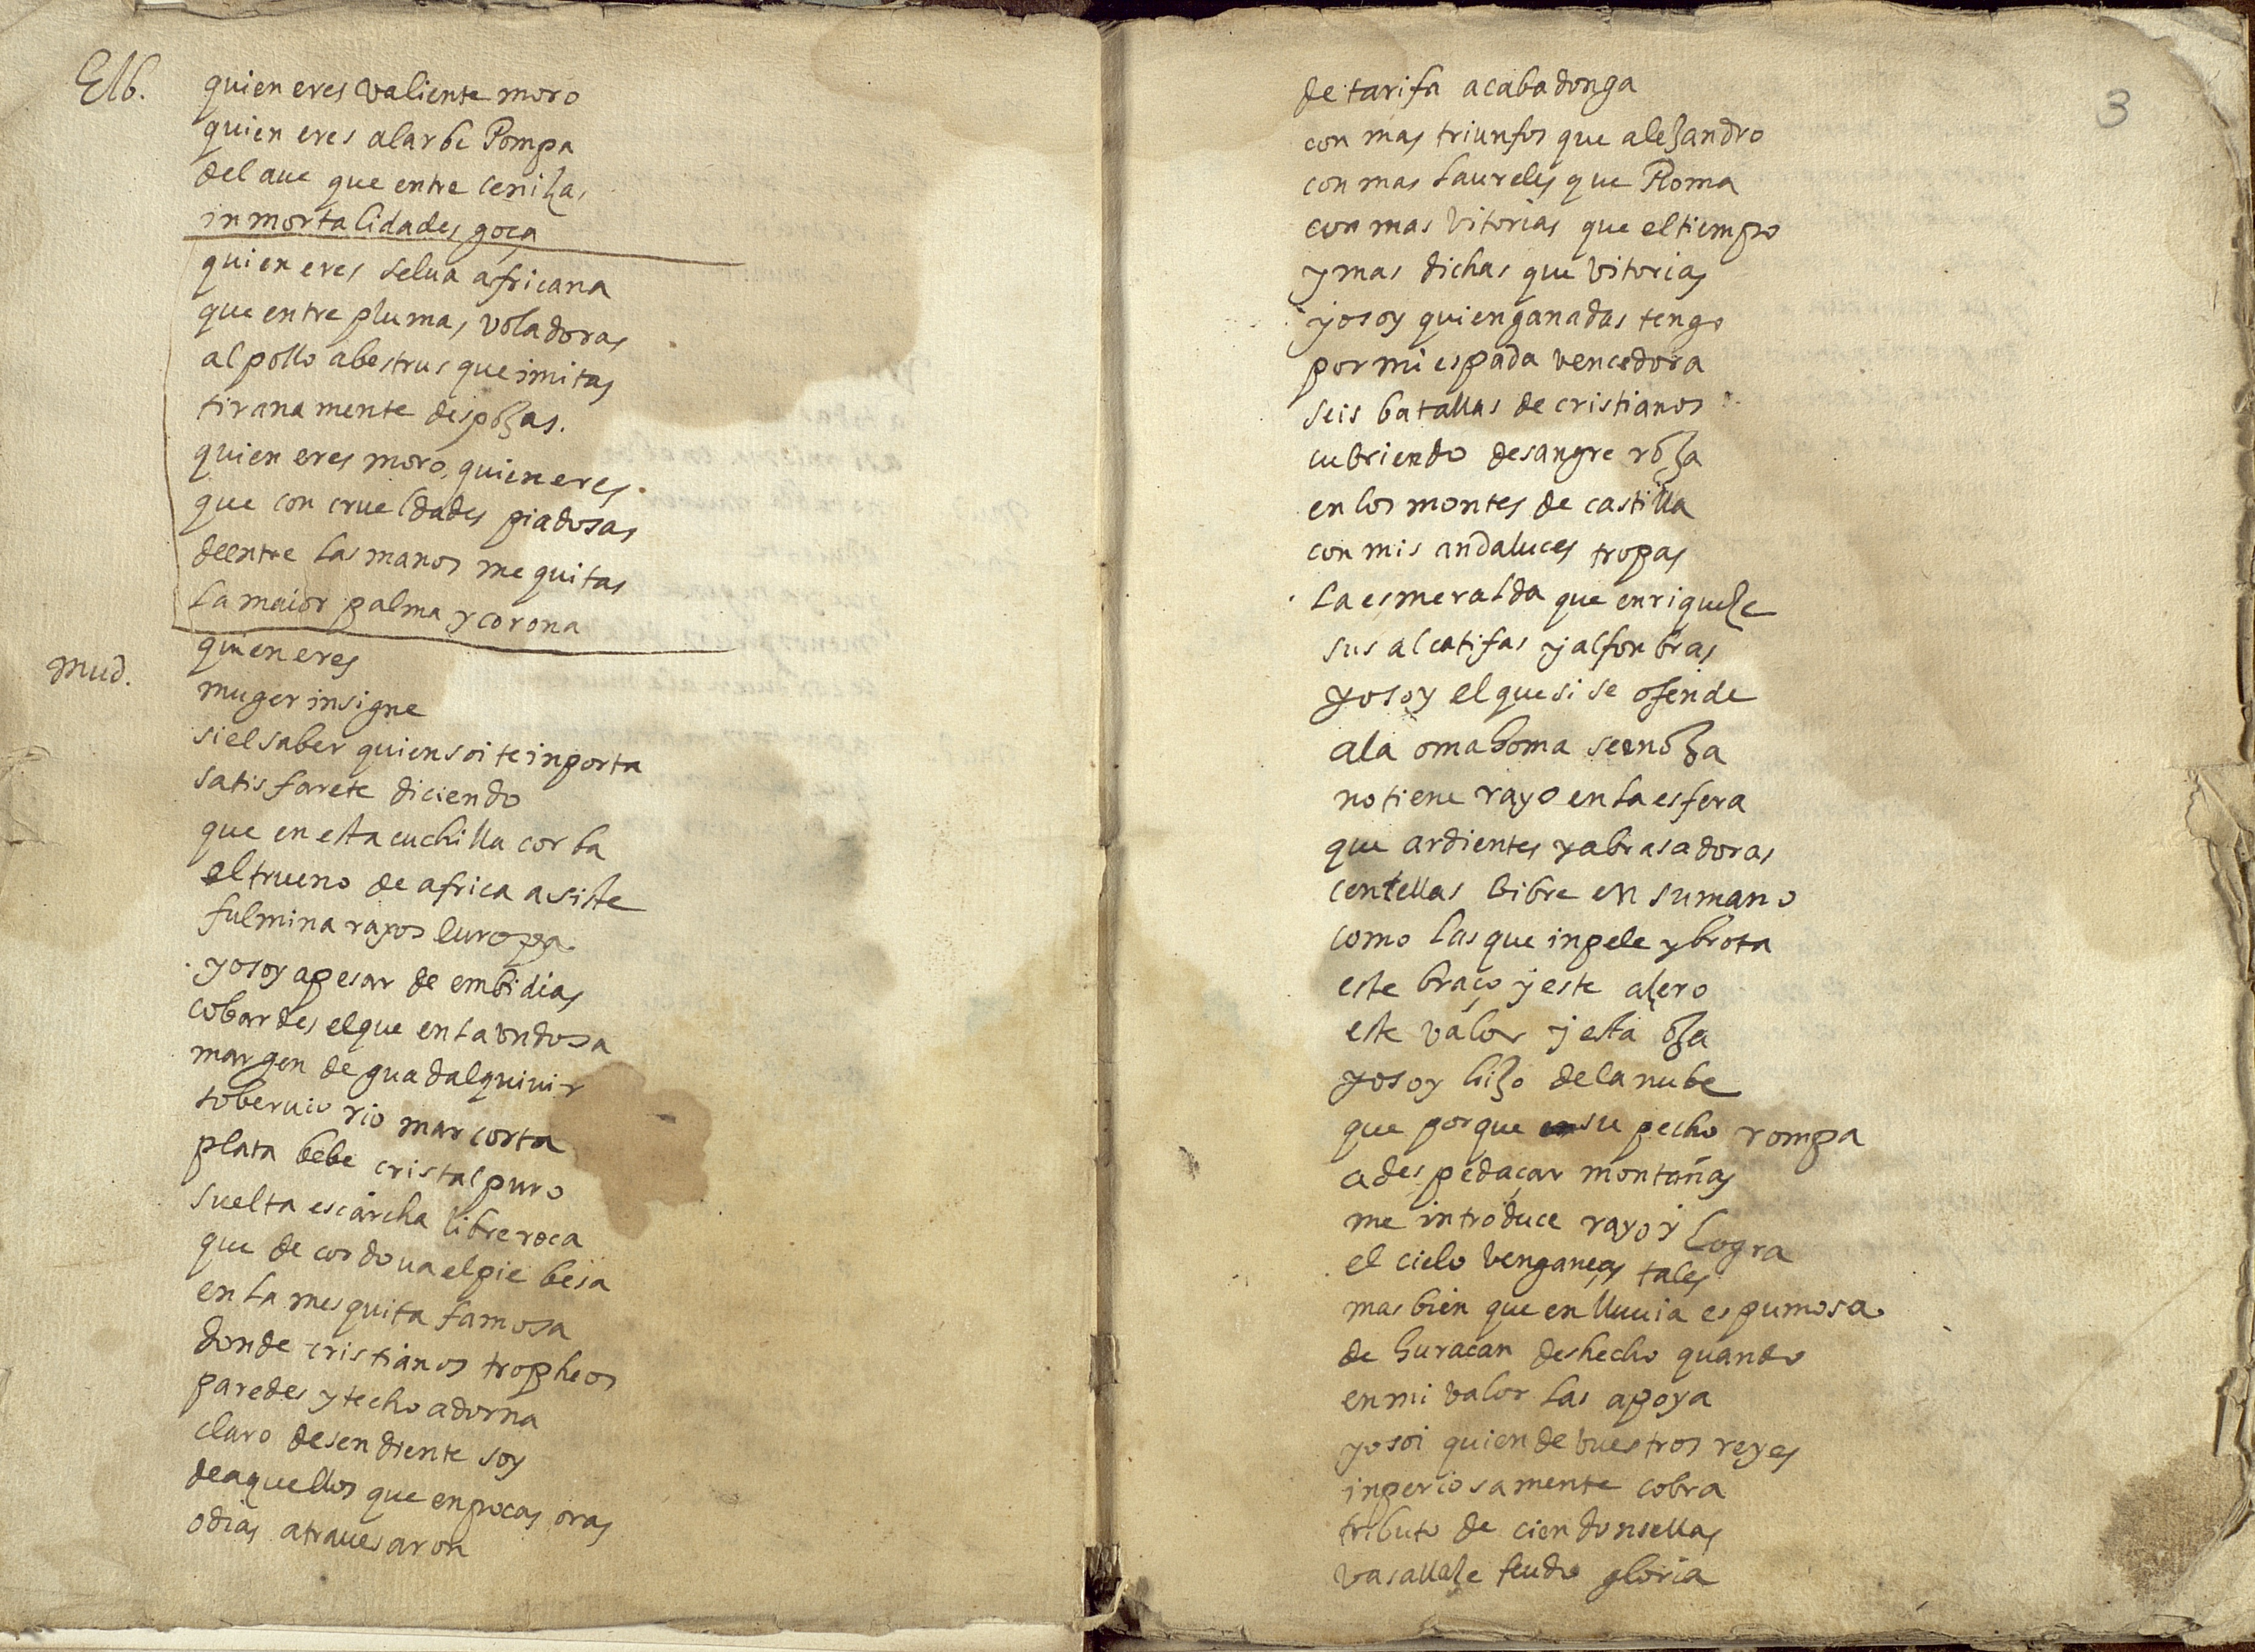 Elb. quien eres valiente moro
quien eres alarbe Pompa
del aue que entre ceniças
inmortalidades goça
quien eres selua africana
que entre plumas voladoras
al pollo abestrus que imitas
tiranamente despojas.
quien eres moro, quien eres
que con crueldades piadosas
de entre las manos me quitas
la maior palma y corona
quien eres
Mud. muger insigne
si el saber quien soi te inporta
satisfarete diciendo
que en esta cuchilla corba
el trueno de africa asiste
fulmina rayos europa.
yo soy apesar de embidias
cobardes el que en la undosa
margen de guadalquiuir
soberuio rio mar corta
plata bebe cristal puro
suelta escarcha libre roca
que de cordoua el pie besa
en la mesquita famosa
donde cristianos tropheos
paredes y techo adorna
claro desendiente soy
de aquellos que en pocas oras
o dias atrauesaron
3
de tarifa a cabadonga
con mas triunfos que alejandro
con mas laureles que Roma
con mas vitorias que el tiempo
y mas dichas que vitorias
yo soy quien ganadas tengo
por mi espada vencedora
seis batallas de cristianos
cubriendo de sangre roja
en los montes de castilla
con mis andaluces tropas
la esmeralda que enriqueçe
sus alcatifas y alfonbras
yo soy el que si se ofende
ala o mahoma se enoja
no tiene rayo en la esfera
que ardientes y abrasadoras
centellas bibre en su mano
como las que inpele y brota
este braço y este açero
este valor y esta oja
yo soy hijo de la nube
que porque su pecho rompa
a despedaçar montañas
me introduce rayo y logra
el cielo venganças tales
mas bien que en lluuia espumosa
de huracan deshecho quando
en mi valor las apoya
yo soi quien de vuestros reyes
inperiosamente cobra
tributo de cien donsellas
vasallaje feudo gloria